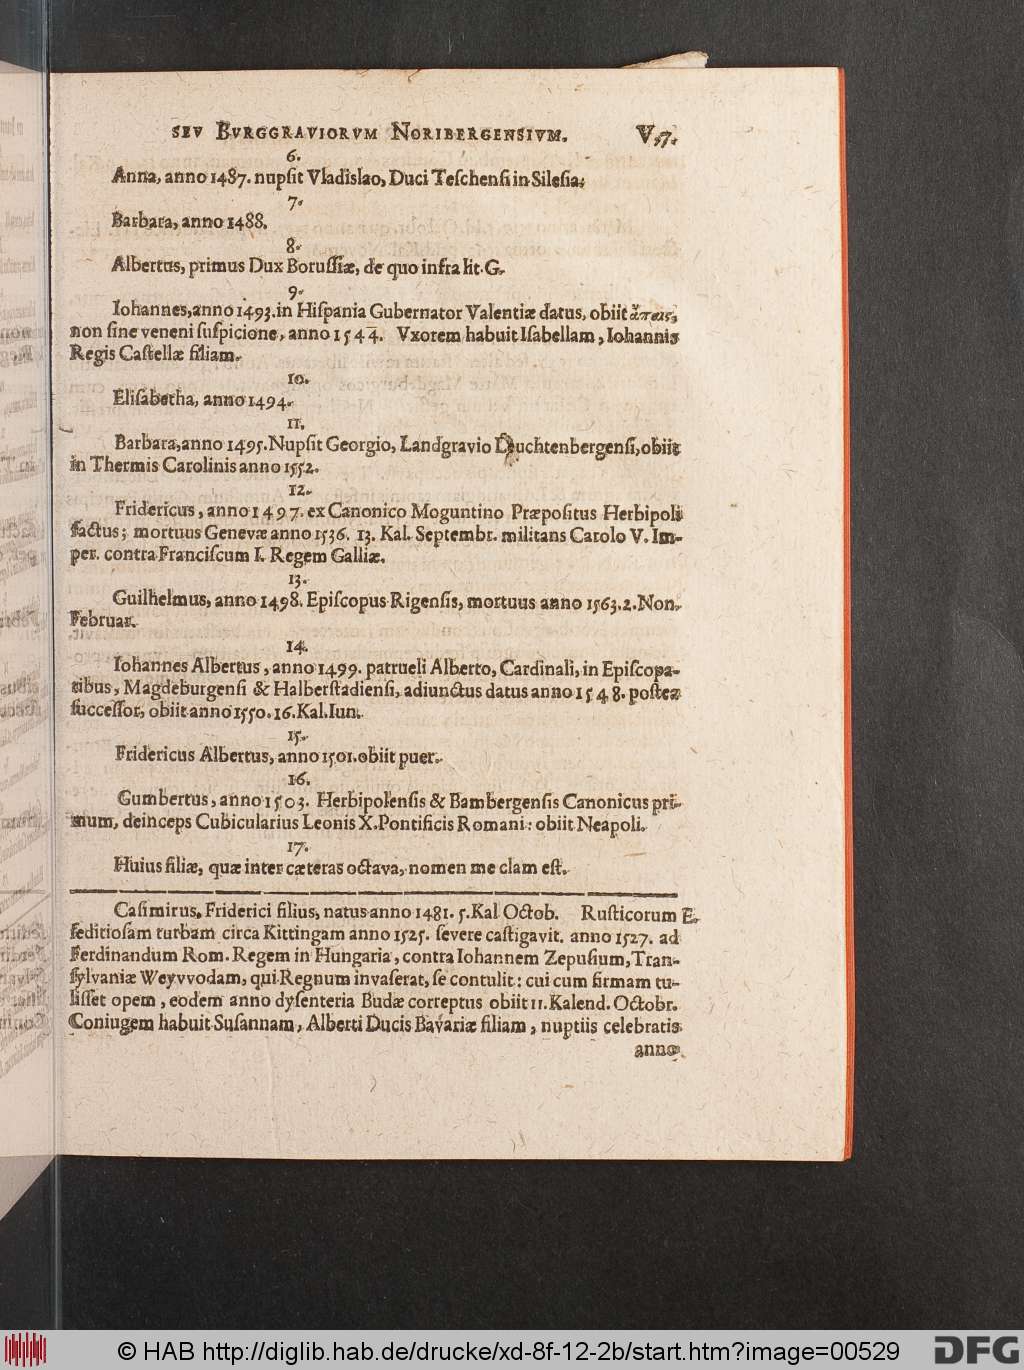 SEV BVRGGRAVIORVM NORIBERGENSIVM. V57.
6.
Anna, anno 1487. nupsit Vladislao, Duci Teschensi in Silesia.
7.
Barbara, anno 1488.
8.
Albertus, primus Dux Borussiæ, de quo infra lit. G.
9.
Iohannes, anno 1493. in Hispania Gubernator Valentiæ datus, obiit ἄπαις,
non sine veneni suspicione, anno 1544. Vxorem habuit Isabellam, Iohannis
Regis Castellæ filiam.
10.
Elisabetha, anno 1494.
11.
Barbara, anno 1495. Nupsit Georgio, Landgravio Leuchtenbergensi, obiit
in Thermis Carolinis anno 1552.
12.
Fridericus, anno 1497. ex Canonico Moguntino Præpositus Herbipoli
factus; mortuus Genevæ anno 1536. 13. Kal. Septembr. militans Carolo V. Im-
per. contra Franciscum I. Regem Galliæ.
13.
Guilhelmus, anno 1498. Episcopus Rigensis, mortuus anno 1563. 2. Non.
Februar.
14.
Iohannes Albertus, anno 1499. patrueli Alberto, Cardinali, in Episcopa-
tibus, Magdeburgensi & Halberstadiensi, adiunctus datus anno 1548. postea
successor, obiit anno 1550. 16. Kal. Iun.
15.
Fridericus Albertus, anno 1501. obiit puer.
16.
Gumbertus, anno 1503. Herbipolensis & Bambergensis Canonicus pri-
mum, deinceps Cubicularius Leonis X. Pontificis Romani: obiit Neapoli.
17.
Huius filiæ, quæ inter cæteras octava, nomen me clam est.
Casimirus, Friderici filius, natus anno 1481. 5. Kal Octob. Rusticorum E.
seditiosam turbam circa Kittingam anno 1525. severe castigavit. anno 1527. ad
Ferdinandum Rom. Regem in Hungaria, contra Iohannem Zepusium, Tran-
sylvaniæ Weyvvodam, qui Regnum invaserat, se contulit: cui cum firmam tu-
lisset opem, eodem anno dysenteria Budæ correptus obiit 11. Kalend. Octobr.
Coniugem habuit Susannam, Alberti Ducis Bavariæ filiam, nuptiis celebratis
anno
© HAB http://diglib.hab.de/drucke/xd-8f-12-2b/start.htm?image=00529
DFG